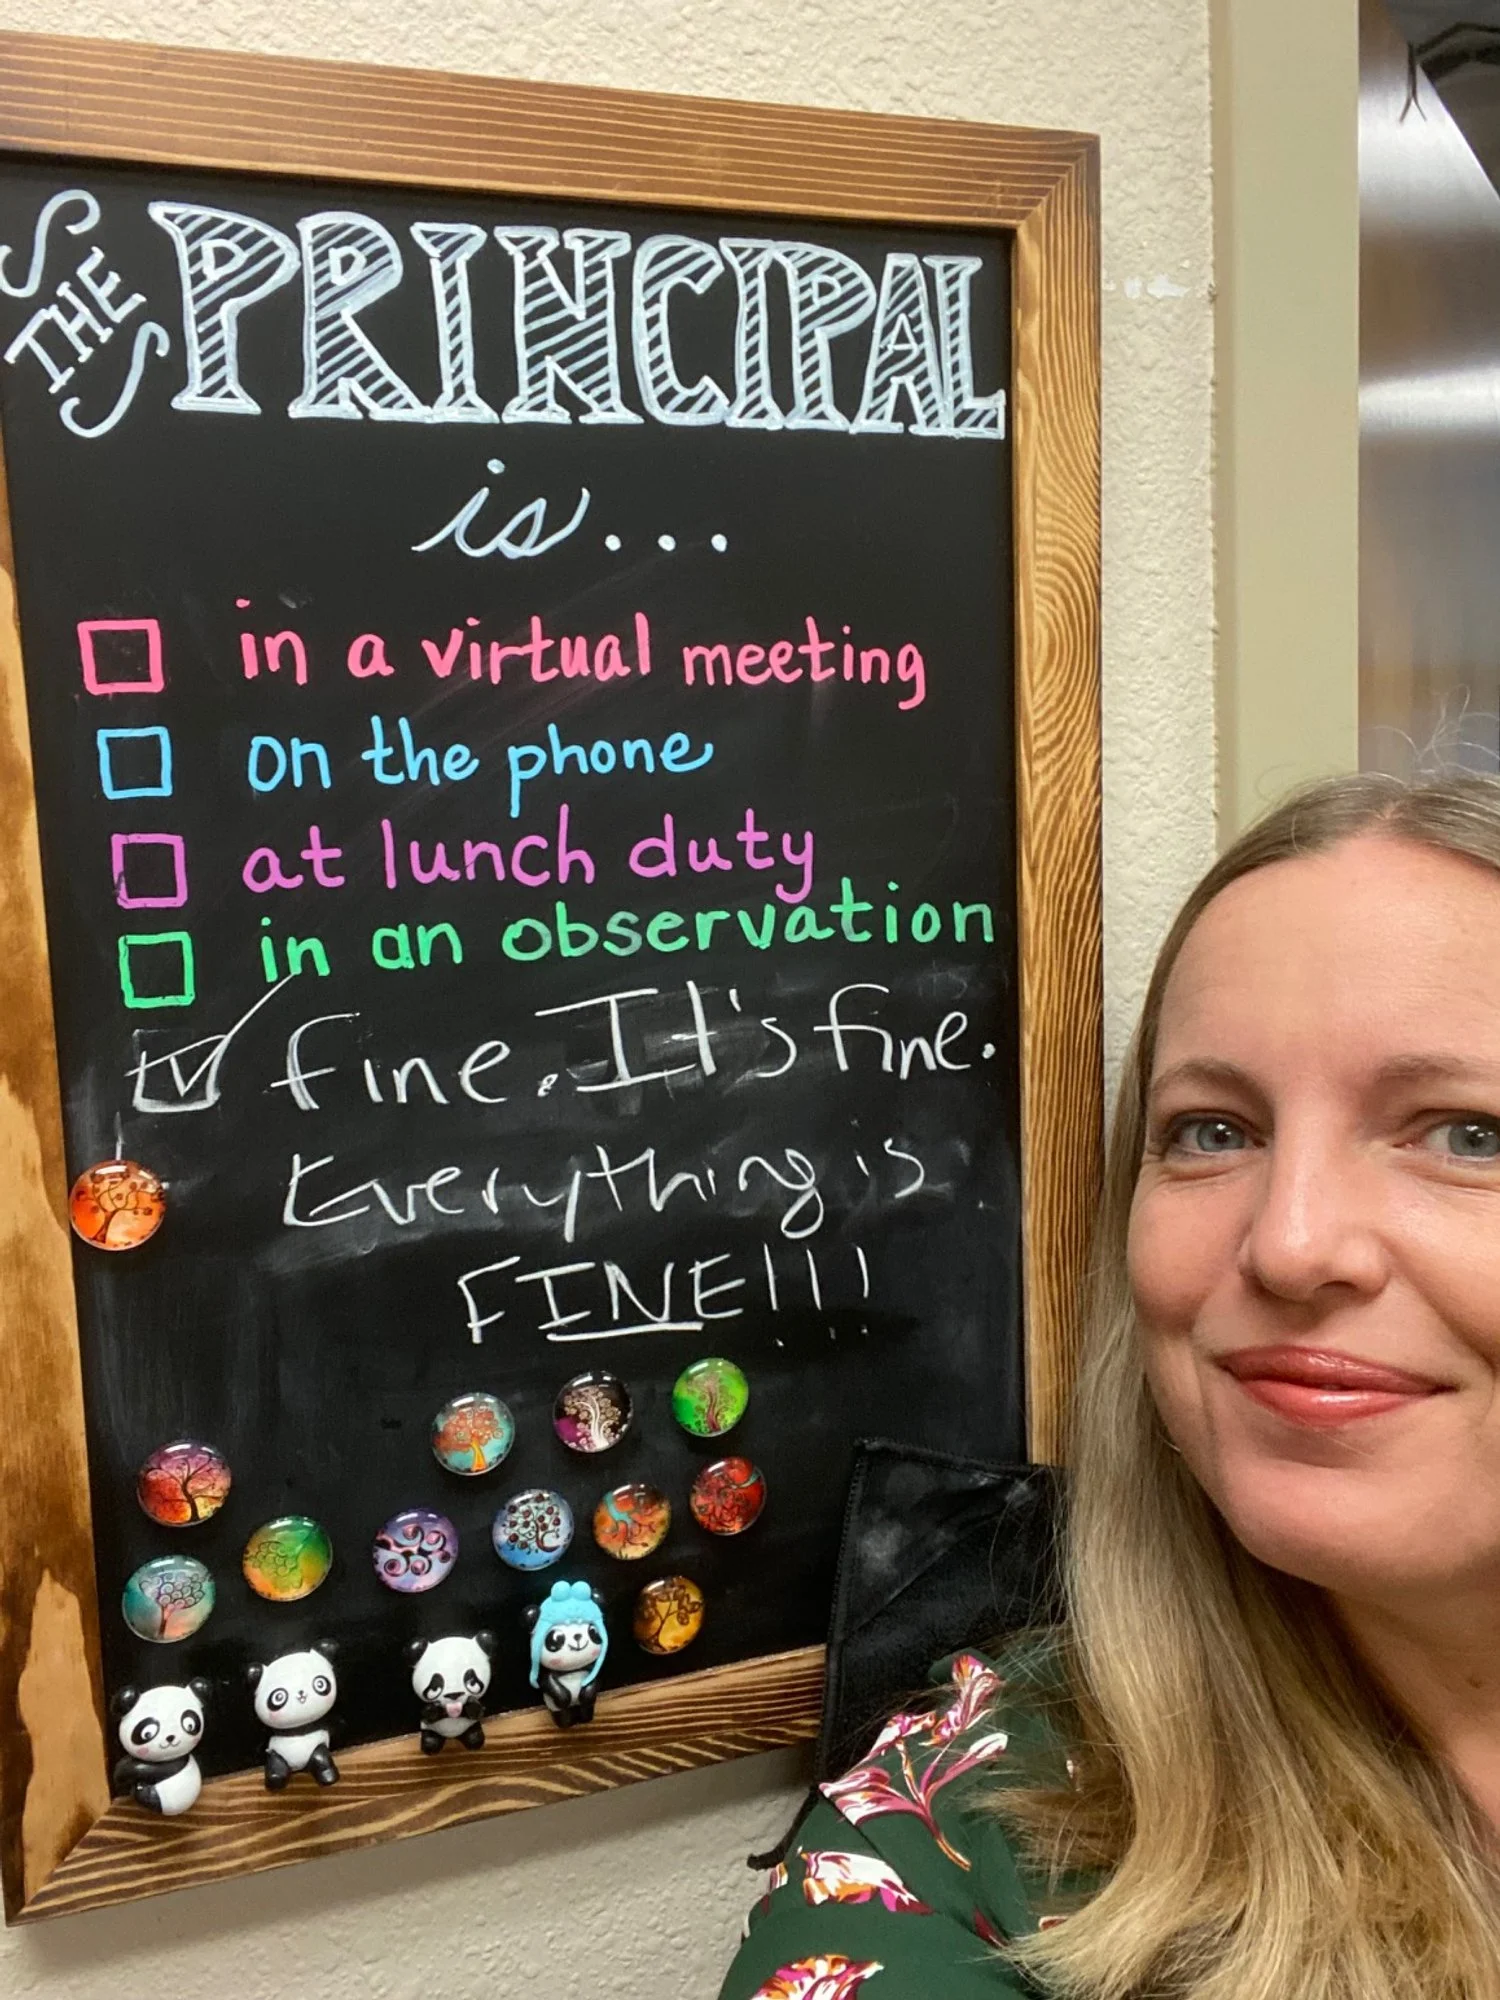 THE PRINCIPAL
is...
in a virtual meeting
on the phone
at lunch duty
in an observation
fine. It's fine.
Everything is
FINE!!!